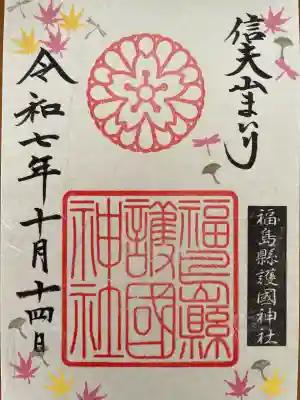 信夫山まいり
福島縣護國神社
福島縣
護國
神社
令和七年十月十四日